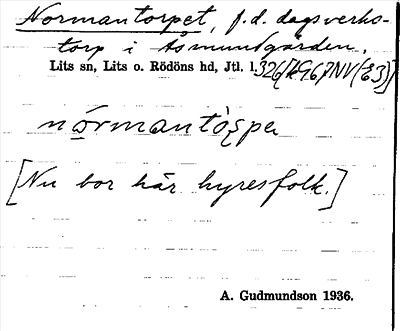 Normantorpet, f.d. dagsverks-
torp i Åsmundgården.
Lits sn, Lits o. Rödöns hd, Jtl. l.
[Nu bor här hyresfolk.]
A. Gudmundson 1936.